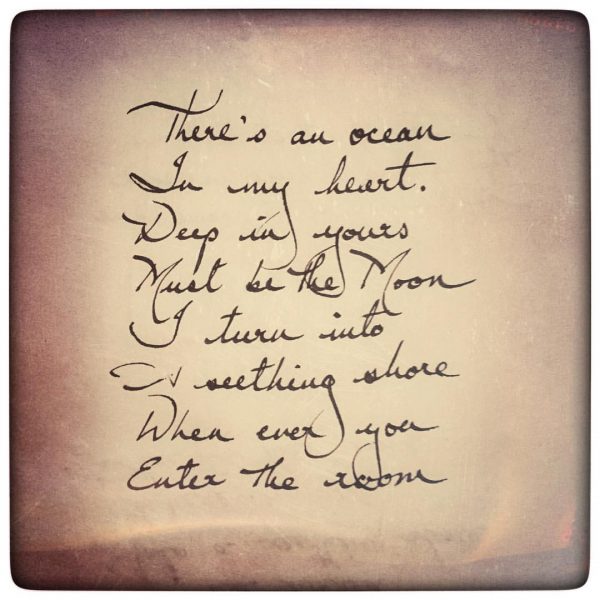 There's an ocean
In my heart.
Deep in yours
Must be the Moon
I turn into
A seething shore
When ever you
Enter the room